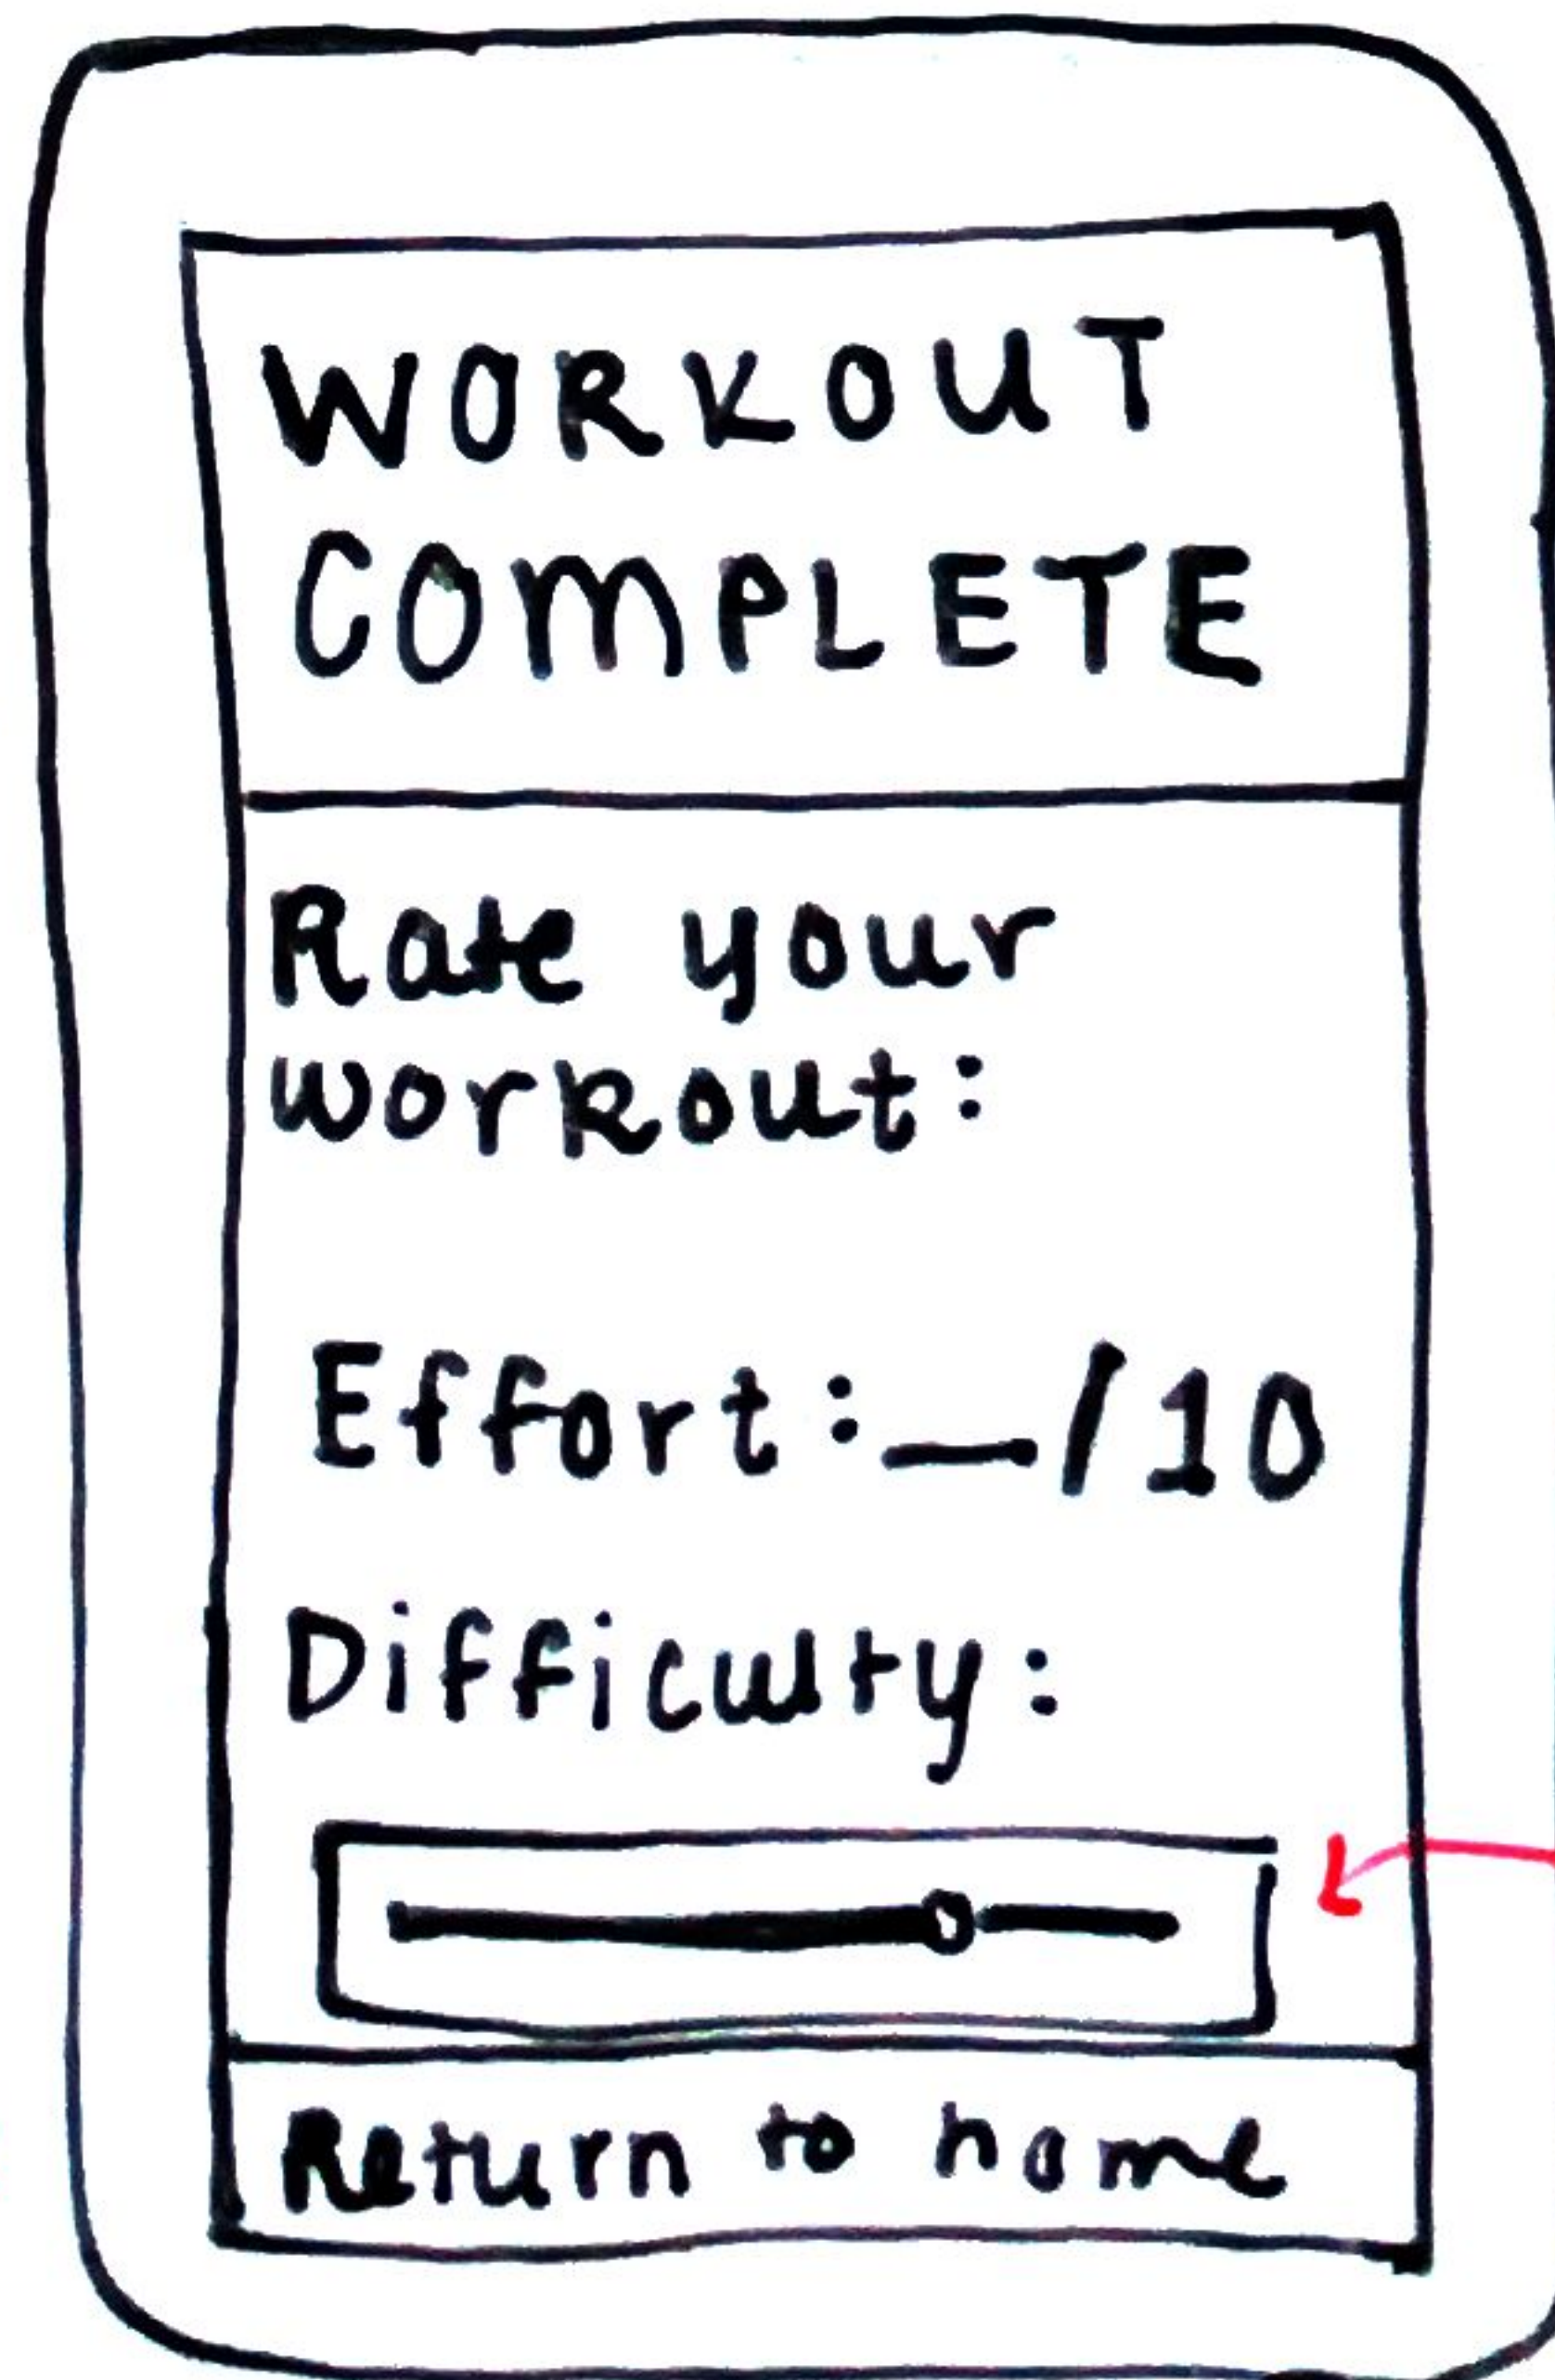 WORKOUT
COMPLETE
Rate your
workout:
Effort:_/10
Difficulty:
Return to home